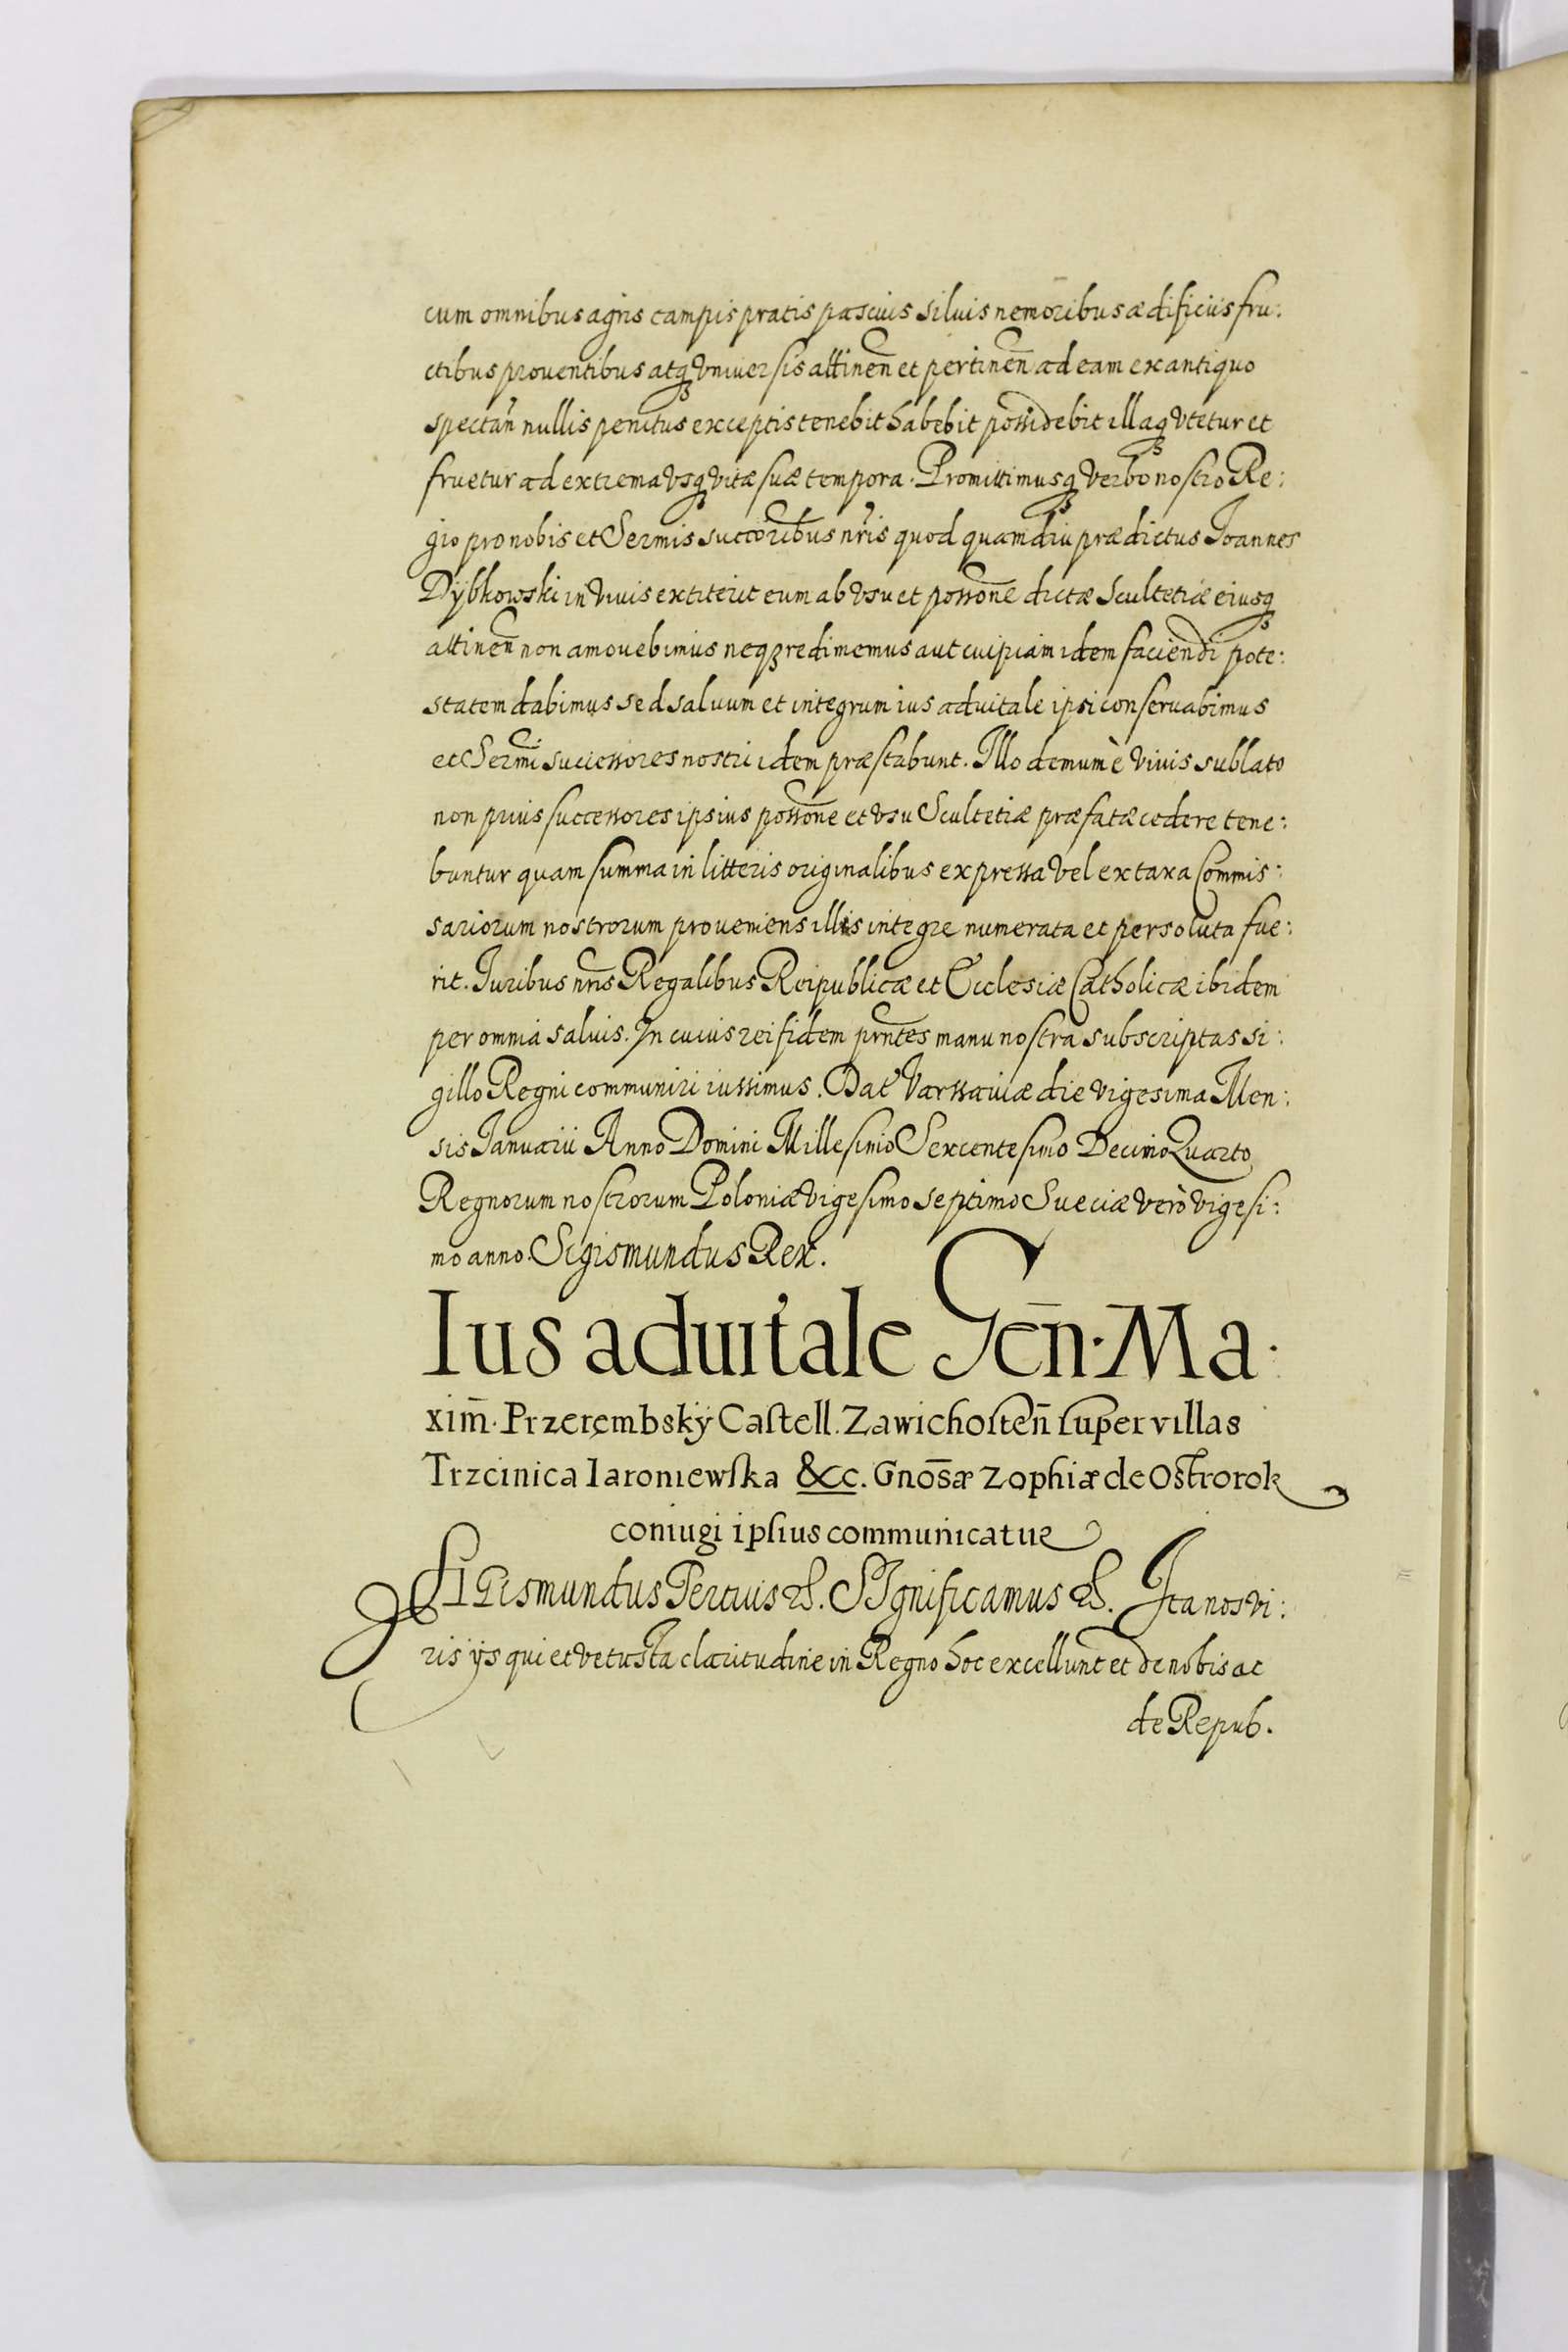 cum omnibus agris campis pratis pascuis siluis nemoribus ædificiis fru:
ctibus prouentibus atqꝫ vniuersis attinen̄ et pertinen̄ ad eam ex antiquo
spectan̄ nullis penitus exceptis tenebit habebit possidebit illaqꝫ vtetur et
fruetur ad extrema vsqꝫ vitæ suæ tempora. Promittimusqꝫ verbo nostro Re:
gio pro nobis et Sermis succoribus nr̄is quod quamdiu prædictus Joannes
Dÿbkowski in viuis extiterit eum ab vsu et possone dictæ Scultetiæ eiusqꝫ
attinen̄ non amouebimus neqꝫ redimemus aut cuipiam idem faciendi pote:
statem dabimus sed saluum et integrum ius aduitale ipsi conseruabimus
et Sermi successores nostri idem præstabunt. Illo demum è viuis sublato
non prius successores ipsius possone et vsu Scultetiæ præfatæ cedere tene:
buntur quam summa in litteris originalibus expressa vel ex taxa Commis:
sariorum nostrorum proueniens illis integre numerata et persoluta fue:
rit. Juribus nr̄is Regalibus Reipublicæ et Ecclesiæ Catholicæ ibidem
per omnia saluis. In cuius rei fidem prn̄tes manu nostra subscriptas si:
gillo Regni communiri iussimus. Dat Varssauiæ die vigesima Men:
sis Januarii Anno Domini Millesimo Sexcentesimo Decimo Quarto
Regnorum nostrorum Poloniæ vigesimo septimo Sueciæ verò vigesi:
mo anno. Sigismundus Rex.
Ius aduitale Gen̄. Ma.
xim̄. Przerembskÿ Castell. Zawichosten̄ super villas
Trzcinica Iaroniewska &c. Gnosæ Zophiæ de Ostrorok
coniugi ipsius communicatur
SIgismundus Tertius &. SIgnificamus &. Ita nos vi:
ris ijs qui et vetusta claritudine in Regno hoc excellunt et de nobis ac
de Repub.